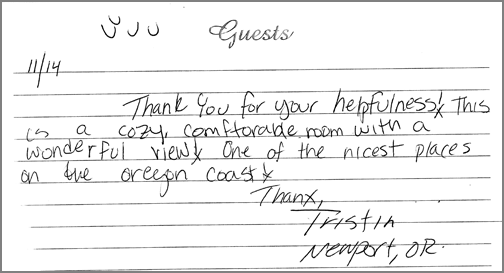 Guests
11/14
Thank You for your helpfulness! This
is a cozy, comftorable room with a
wonderful view! One of the nicest places
on the oregon coast!
Thanx,
Tristin
Newport, OR.